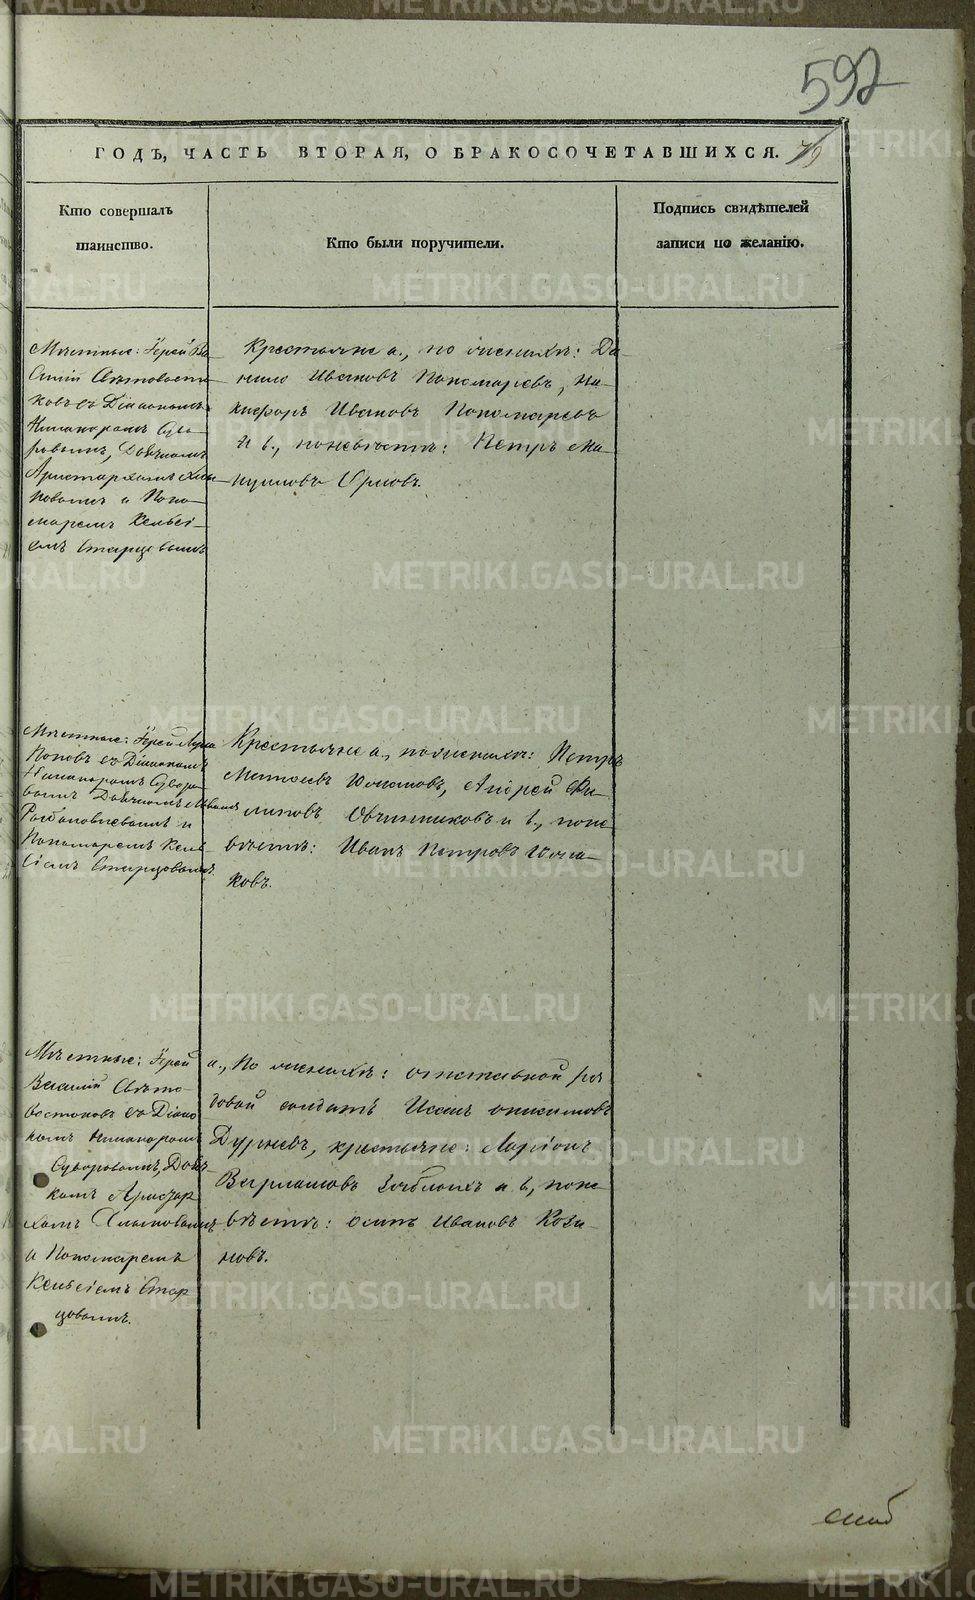 592
ГОДЪ, ЧАСТЬ ВТОРАЯ, О БРАКОСОЧЕТАВШИХСЯ.
Кто совершалъ
таинство.
Кто были поручители.
Подпись свидѣтелей
записи по желанію.
Мѣстные: Іерей Ва-
силій Свѣтовосто-
ковъ съ Діакономъ
Никаноромъ Суво-
ровымъ, Дьячкомъ
Аристархомъ
и Поно-
маремъ Кельсі-
емъ Старцовымъ
Крестьяне а., по женихѣ: Да-
нило Ивановъ Пономаревъ, Ни-
кифоръ Ивановъ Пономаревъ
и в., по невѣстѣ: Петръ Ма-
нуиловъ Орловъ.
Мѣстные: Іерей
Поповъ съ Діакономъ
Никаноромъ Суворо-
вымъ Дьячкомъ
и
Пономаремъ Кель-
сіемъ Старцовымъ.
Крестьяне а., по женихѣ: Петръ
Матвеевъ Южаковъ, Андрей Фи-
липовъ Овчинниковъ и в., по не-
вѣстѣ: Иванъ Петровъ Южа-
ковъ.
Мѣстные: Іерей
Василій Свѣто-
востоковъ съ Діако-
номъ Никаноромъ
Суворовымъ, Дьяч-
комъ Аристар-
хомъ
и Пономаремъ
Кельсіемъ Стар
цовымъ.
а., По женихѣ: отставной ря-
довой солдатъ Исаакъ Онисимовъ
Дурневъ, крестьяне: Ларіонъ
Варламовъ и в., по не-
вѣстѣ: Осипъ Ивановъ Кози-
новъ.
METRIKI.GASO-URAL.RU